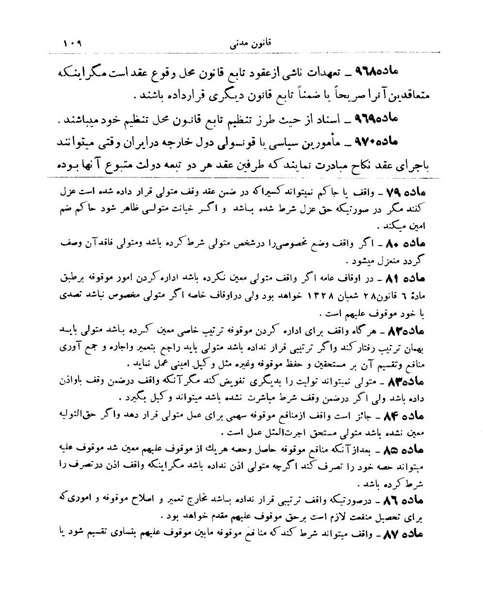 قانون مدنی ۱۰۹
ماده۹۶۸ ـ تعهدات ناشی ازعقود تابع قانون محل وقوع عقد است مگراینکه
متعاقدین آنرا صریحاً یا ضمناً تابع قانون دیگری قرارداده باشند .
ماده۹۶۹ ـ اسناد از حیث طرز تنظیم تابع قانون محل تنظیم خود میباشند .
ماده۹۷۰ ـ مأمورین سیاسی یا قونسولی دول خارجه درایران وقتی میتوانند
باجرای عقد نکاح مبادرت نمایند که طرفین عقد هر دو تبعه دولت متبوع آنها بوده
ماده ۷۹ ـ واقف یا حاکم نمیتواند کسیراکه در ضمن عقد وقف متولی قرار داده شده است عزل
کنند مگر در صورتیکه حق عزل شرط شده باشد و اگر خیانت متولی ظاهر شود حاکم ضم
امین میکند .
ماده ۸۰ ـ اگر واقف وضع مخصوصی‌را درشخص متولی شرط کرده باشد ومتولی فاقدآن وصف
گردد منعزل میشود .
ماده ۸۱ ـ در اوقاف عامه اگر واقف متولی معین نکرده باشد اداره کردن امور موقوفه برطبق
مادهٔ ۶ قانون۲۸ شعبان ۱۳۲۸ خواهد بود ولی دراوقاف خاصه اگر متولی مخصوص نباشد تصدی
با خود موقوف علیهم است .
ماده۸۲ ـ هرگاه واقف برای اداره کردن موقوفه ترتیب خاصی معین کرده باشد متولی باید
بهمان ترتیب رفتارکند واگر ترتیبی قرار نداده باشد متولی باید راجع بتعمیر واجاره و جمع آوری
منافع وتقسیم آن بر مستحقین و حفظ موقوفه وغیره مثل وکیل امینی عمل نماید .
ماده۸۳ ـ متولی نمیتواند تولیت را بدیگری تفویض‌کند مگرآنکه واقف درضمن وقف باواذن
داده باشد ولی اگر درضمن وقف شرط مباشرت نشده باشد میتواند وکیل بگیرد .
ماده ۸۴ ـ جائز است واقف ازمنافع موقوفه سهمی برای عمل متولی قرار دهد واگر حق‌التولیه
معین نشده باشد متولی مستحق اجرت‌المثل عمل است .
ماده ۸۵ ـ بعدازآنکه منافع موقوفه حاصل وحصه هریك از موقوف علیهم معین شد موقوف علیه
میتواند حصه خود را تصرف کند اگرچه متولی اذن نداده باشد مگراینکه واقف اذن درتصرف را
شرط کرده باشد .
ماده ۸۶ ـ درصورتیکه واقف ترتیبی قرار نداده باشد مخارج تعمیر و اصلاح موقوفه و اموری‌که
برای تحصیل منفعت لازم است برحق موقوف علیهم مقدم خواهد بود .
ماده ۸۷ ـ واقف میتواند شرط کند که منافع موقوفه مابین موقوف علیهم بتساوی تقسیم شود یا